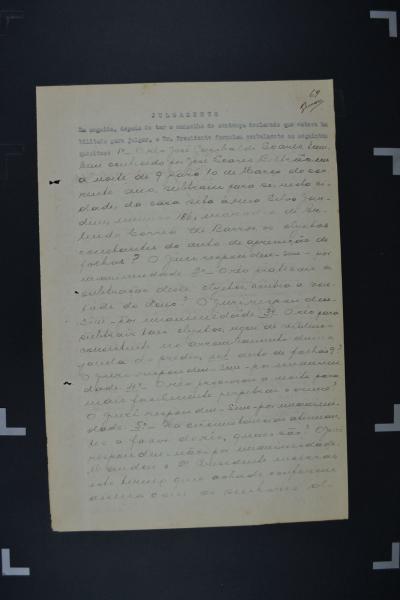 69
JULGAMENTO
Em seguida, depois de ter o conselho de sentença declarado que estava ha
bilitado para julgar, o Dr. Presidente formulou verbalmente os seguintes
quesitos: 1º O réo José Garibaldi Soares, tam
bem conhecido por José Soares
a noite de 9 para 10 de Março do cor-
rente ano, subtraiu para si, nesta ci-
dade, da casa sita á rua Silva Jar-
dim, numero 186, morada de
Corrêa de Barros, os objetos
constantes do auto de apreensão de
folhas? O Juri respondeu - sim - por
unanimidade. 2º O réo praticou a
subtração deste objetos, contra a von-
tade do dono? O Juri respon deu -
Sim - por unanimidade. 3º O réo para
subtrair tais objetos, usou de violencia
consistente no arrombamento de uma
janela do predio, auto de folhas?
O Juri respondeu - Sim - por unanimi
dade. 4º O réo procurou a noite para
mais facilmente perpetrar o crime?
O Juri respondeu - Sim - por unanimi-
dade. 5º Ha circunstancias atenuan-
tes a favor do réo, quaes são? O Juri
respondeu - não - por unanimidade.
Mandou o Dr. Presidente
este termo, que achado conforme
assina com os senhores